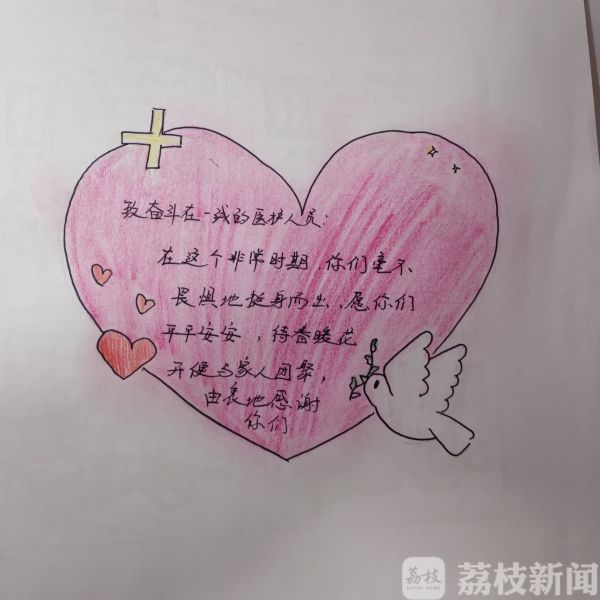 致奋斗在一线的医护人员：
在这个非常时期，你们毫不
畏惧地挺身而出，愿你们
平平安安，待春暖花
开便与家人团聚，
由衷地感谢
你们
荔枝
荔枝新闻